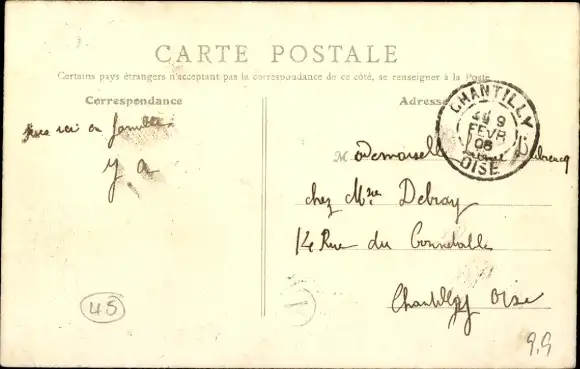 CARTE POSTALE
Certains pays étrangers n'acceptant pas la correspondance de ce côté, se renseigner à la Poste
Correspondance
Adresse
CHANTILLY
9
FEVR
06
OISE
en famille
Mademoiselle
chez Mme Debray
14 Rue du Connétable
Chantilly Oise
45
9.9